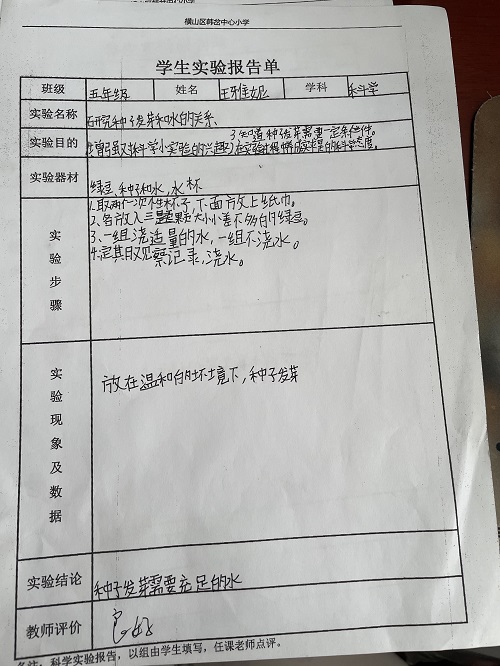 横山区韩岔中心小学
学生实验报告单
班级 五年级 姓名 王雅妮 学科 科学
实验名称 研究种子发芽和水的关系、
实验目的 3知道种子发芽需要一定条件。
1增强对科学小实验的兴趣2在实验过程中 实事求是的科学态度。
实验器材 绿豆、种子和水,水杯
实验步骤 1.取两个一次性杯子,下面方放上纸巾。
2、各放入三 颗大小差不多的绿豆。
3、一组浇适量的水,一组不浇水。
4、定其月观察记录,浇水。
实验现象及数据 放在温和的环境下,种子发芽
实验结论 种子发芽需要充足的水
教师评价 良好
备注:科学实验报告,以组由学生填写,任课老师点评。